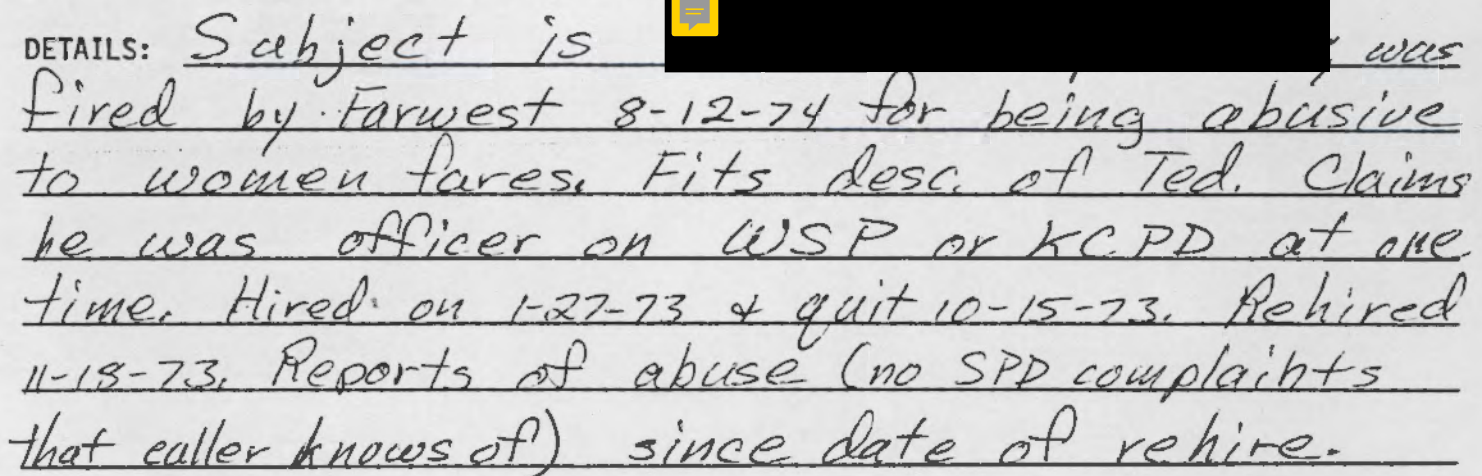 DETAILS: Subject is was
fired by Farwest 8-12-74 for being abusive
to women fares. Fits desc. of Ted. Claims
he was officer on WSP or KCPD at one
time. Hired on 1-27-73 & quit 10-15-73. Rehired
11-18-73. Reports of abuse (no SPD complaints
that caller knows of) since date of rehire.